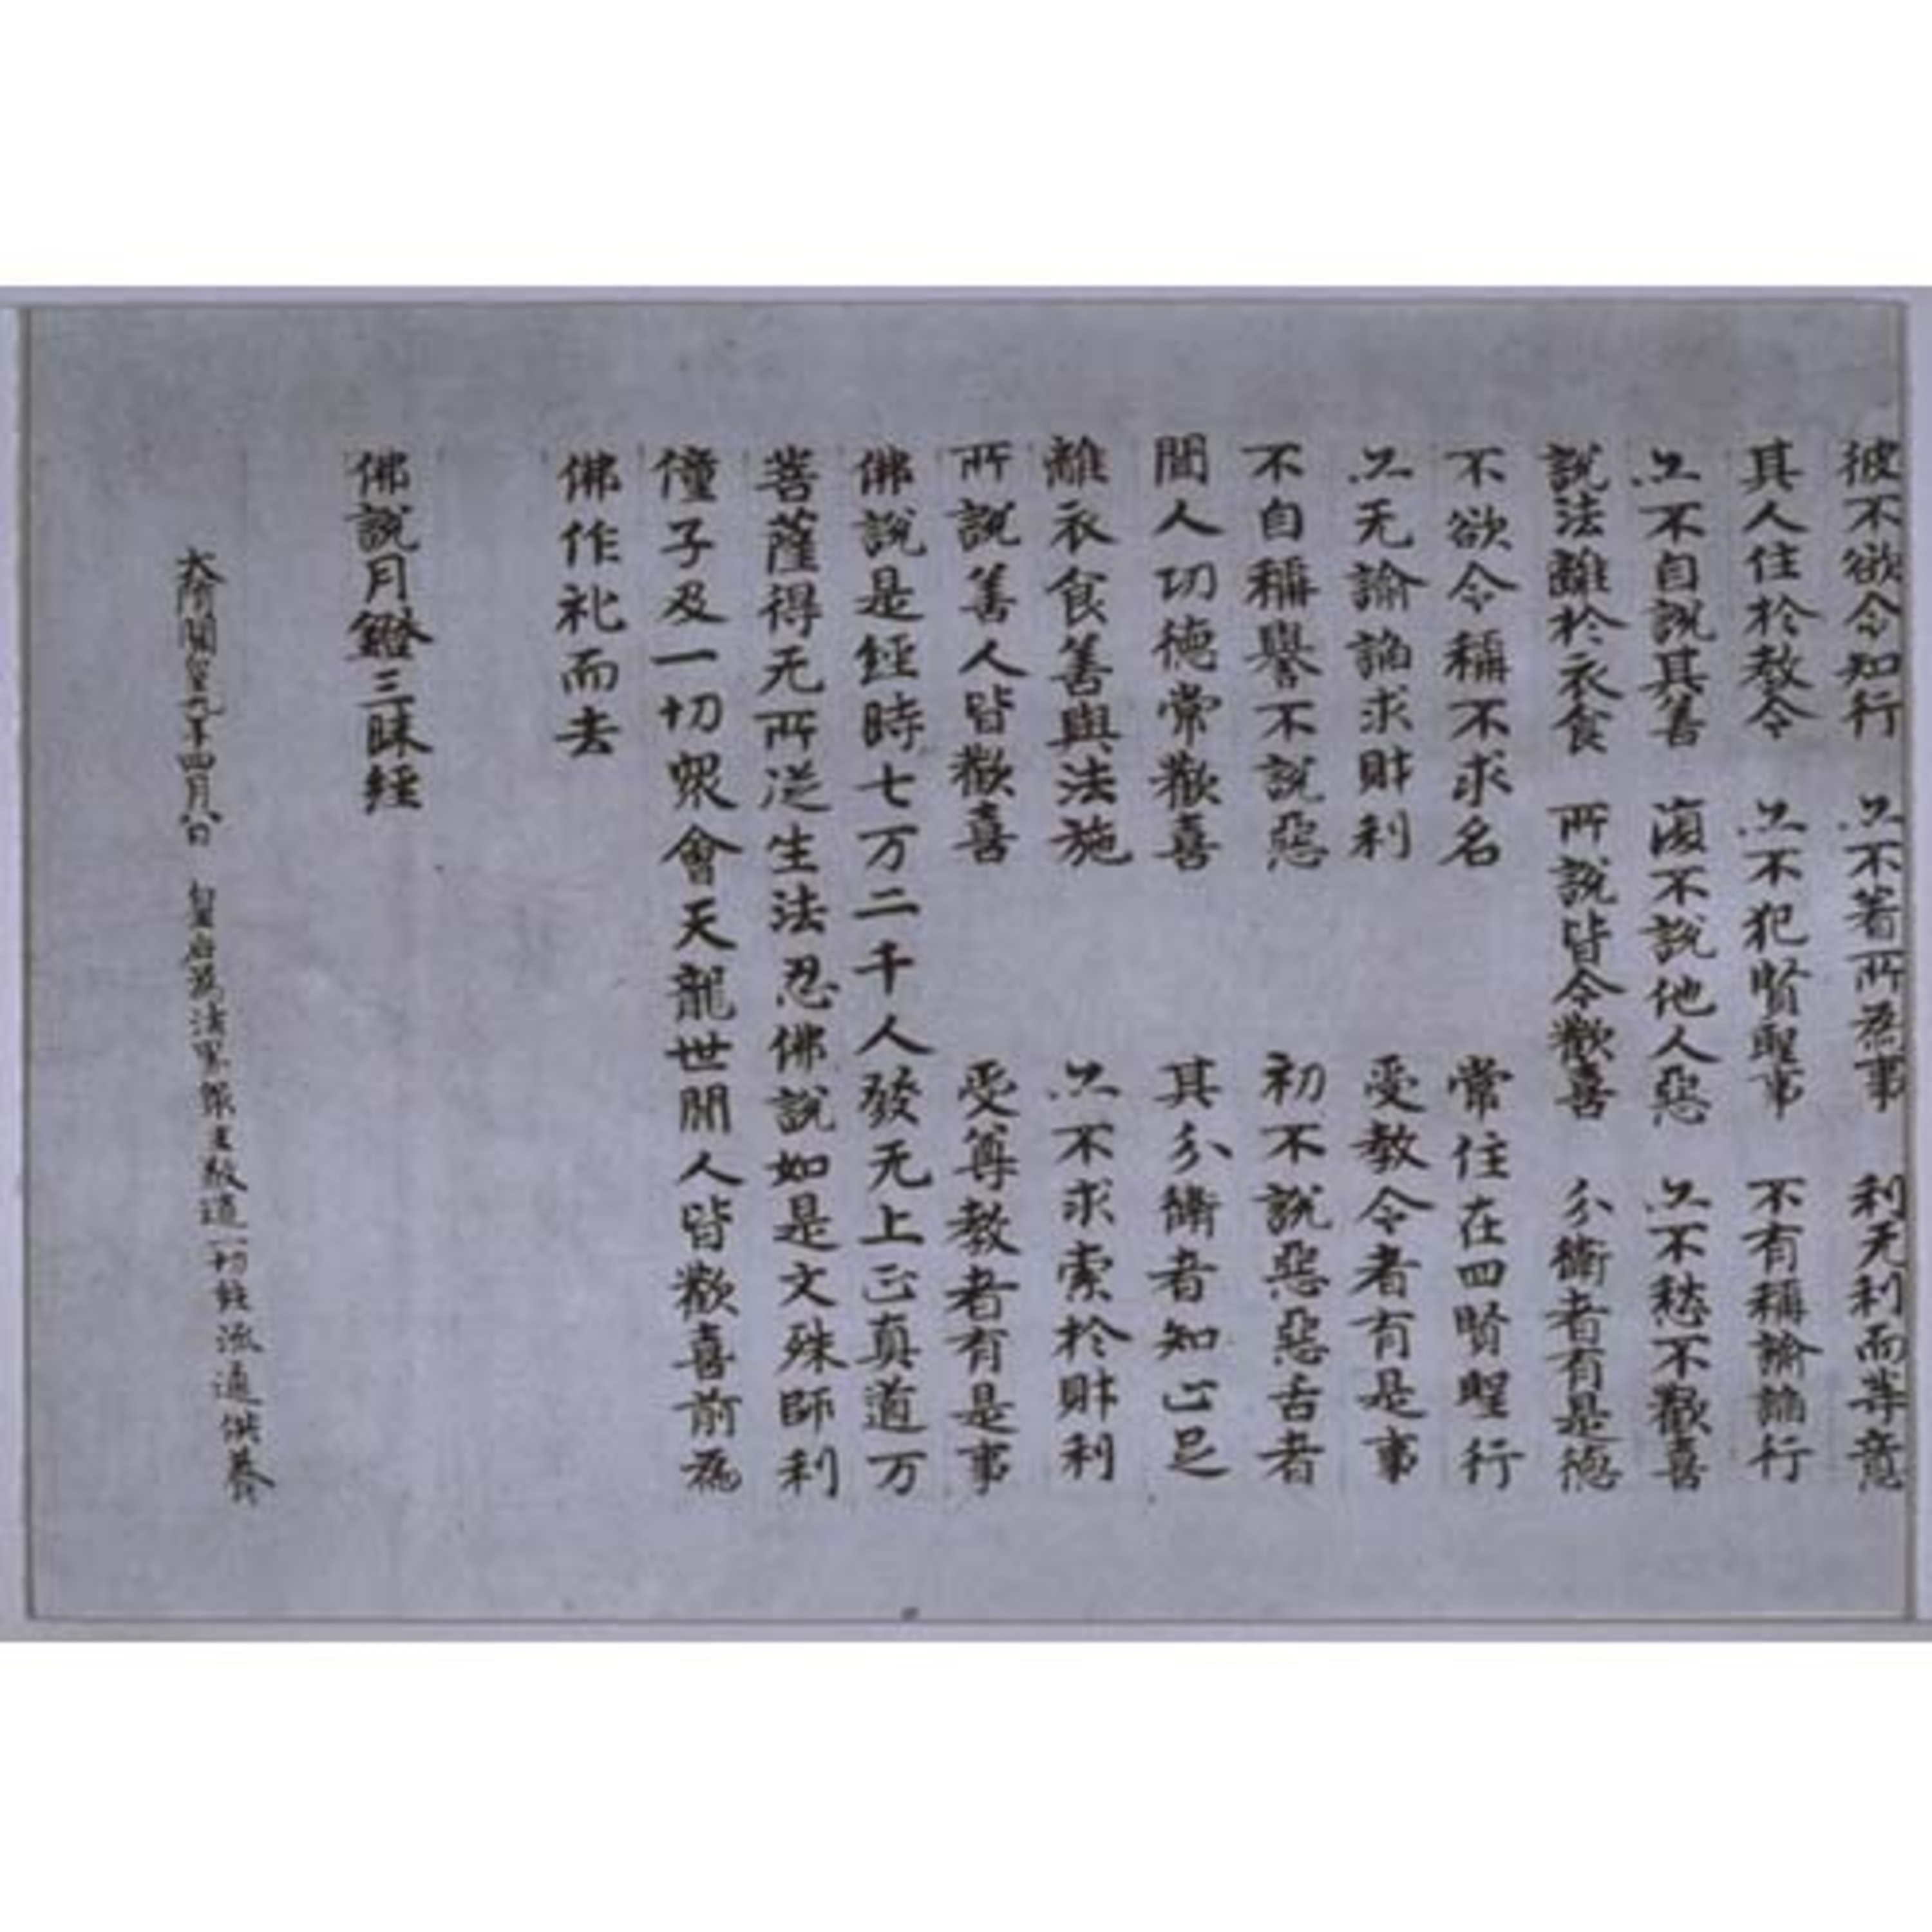 彼不欲令知行　亦不著所為事　利无利而等意
其人住於教令　亦不犯賢聖事　不有稱諭諂行
亦不自說其善　復不說他人惡　亦不愁不歡喜
說法離於衣食　所說皆令歡喜　分衛者有是德
不欲令稱不求名　常住在四賢聖行
亦无諭諂求財利　受教令者有是事
不自稱譽不說惡　初不說惡惡舌者
聞人功德常歡喜　其分衛者知止足
離衣食善與法施　亦不求索於財利
所說善人皆歡喜　受尊教者有是事
佛說是經時七万二千人發无上正真道万
菩薩得无所從生法忍佛說如是文殊師利
僮子及一切眾會天龍世間人皆歡喜前為
佛作礼而去
佛說月鐙三昧經
大隋開皇九年四月八日　皇后為法界眾生敬造一切經流通供養